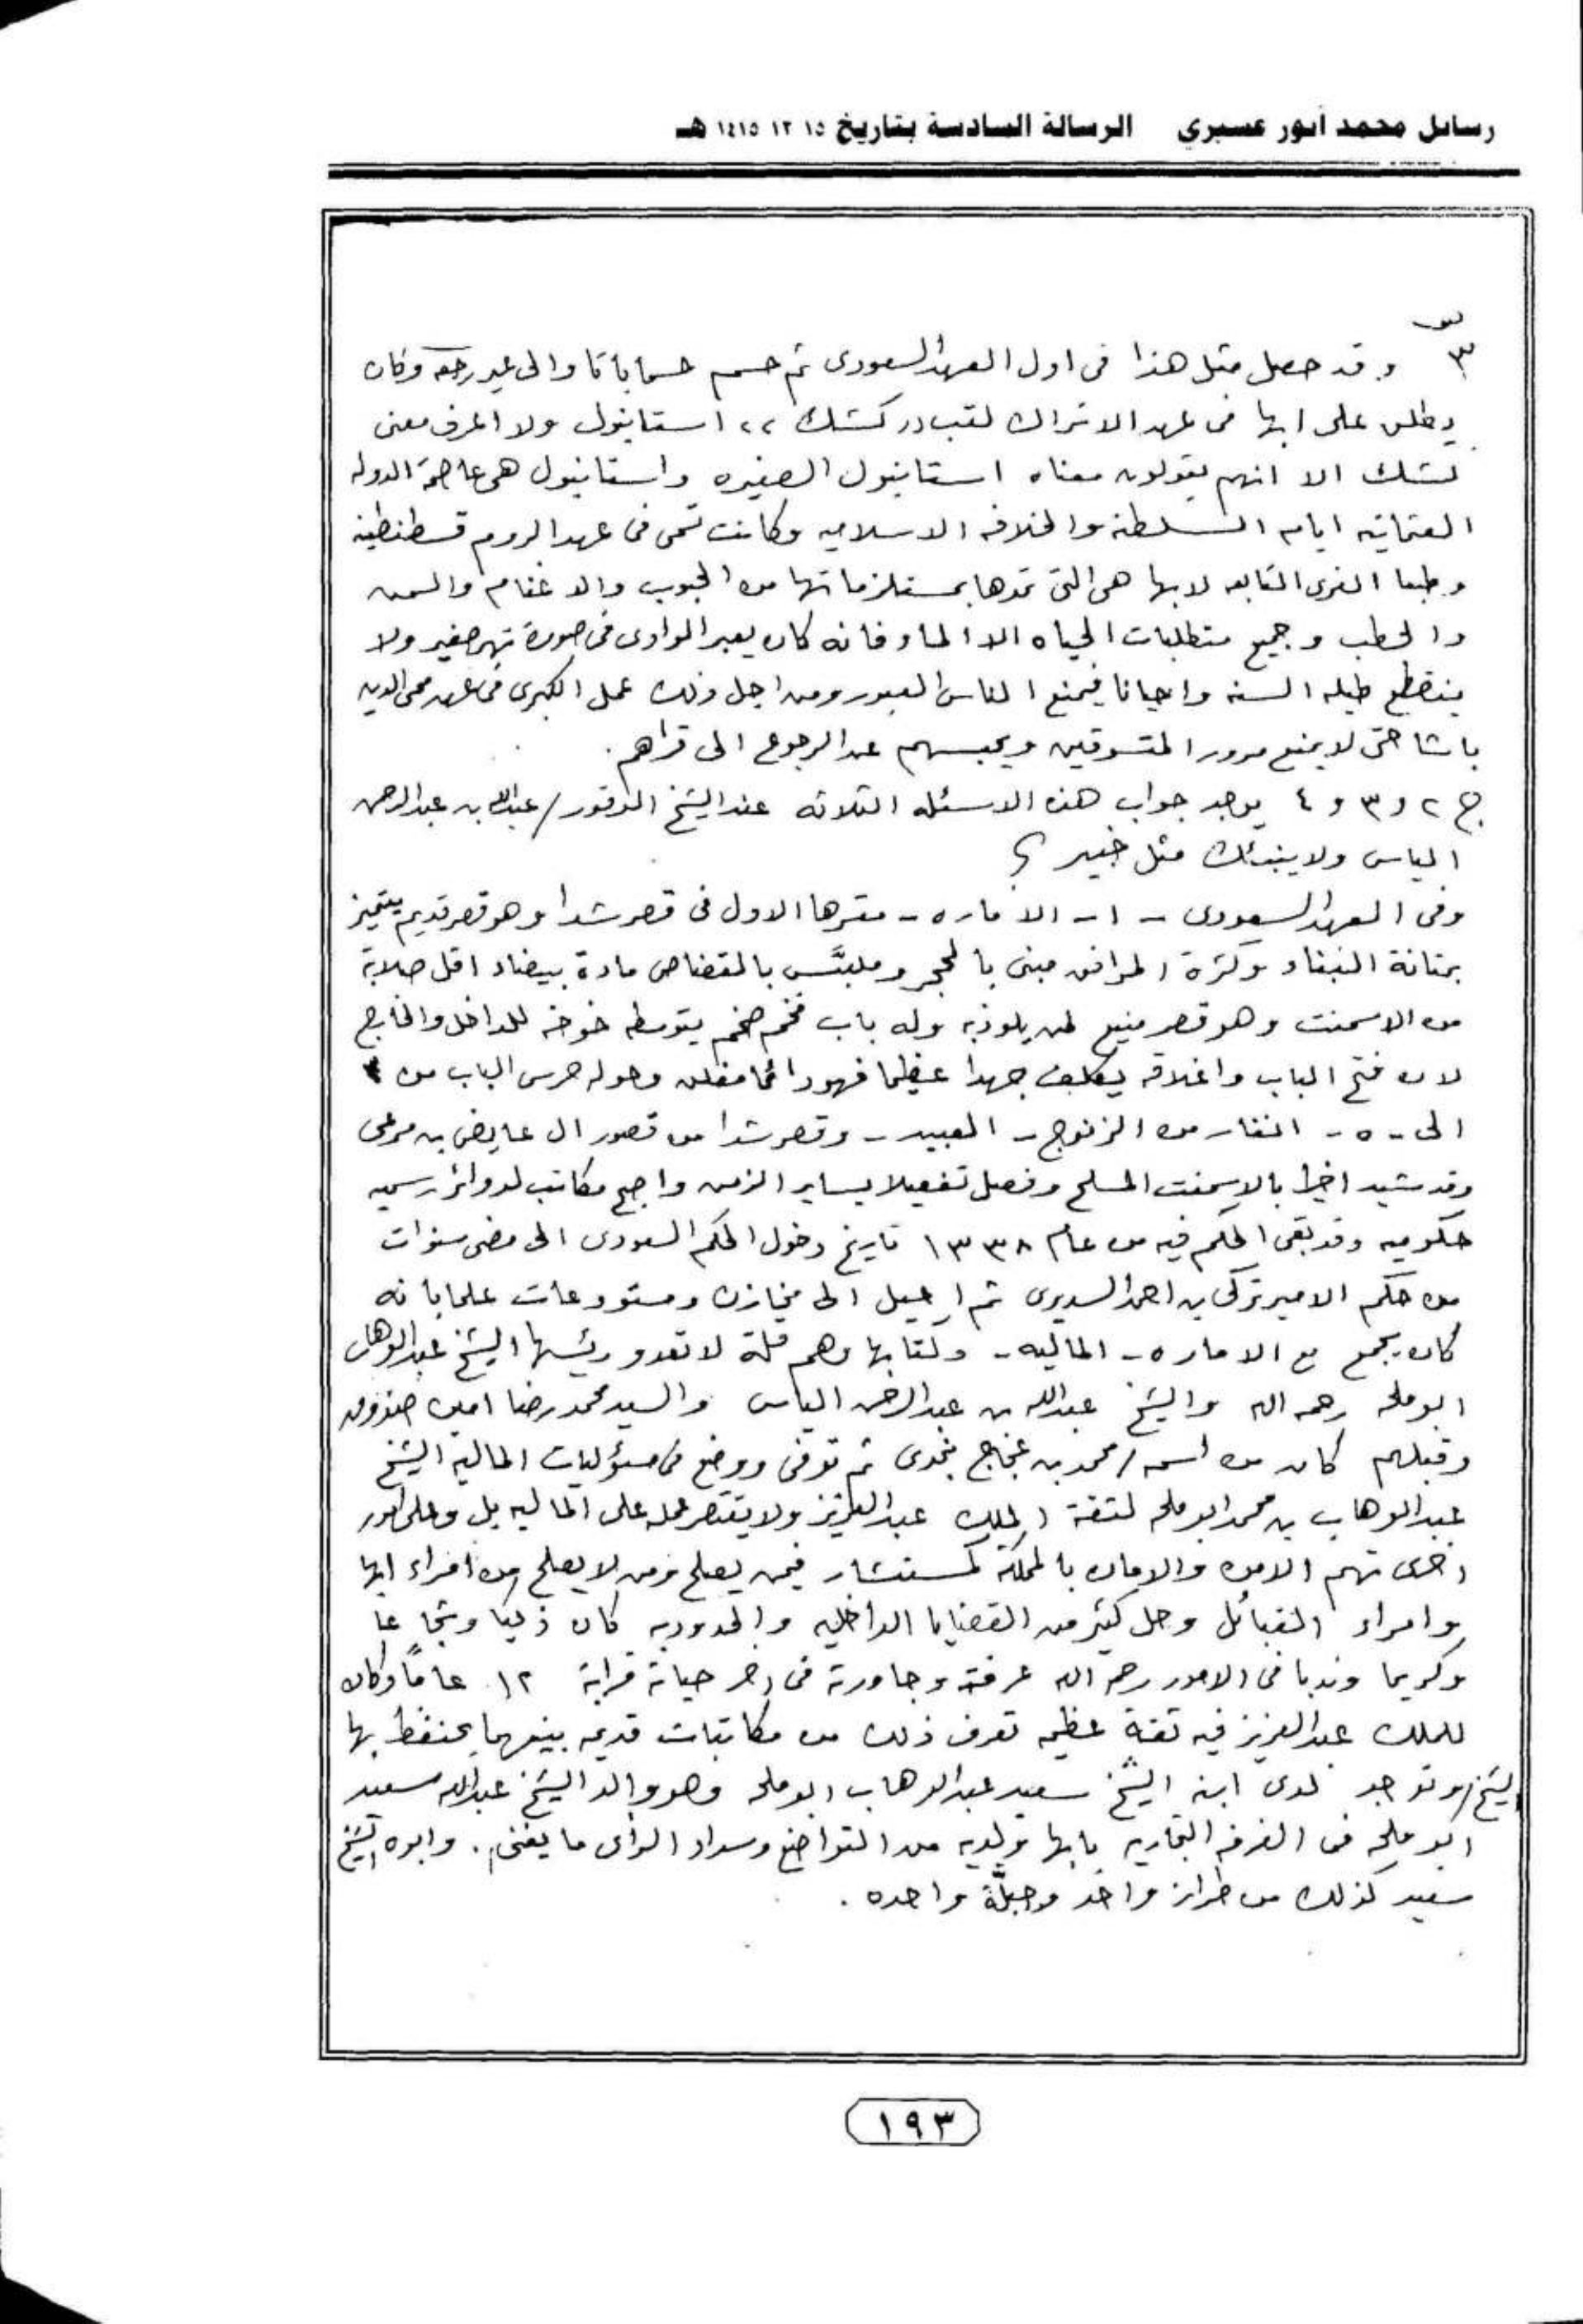 رسائل محمد أنور عسيري الرسالة السادسة بتاريخ ١٥ ١٢ ١٤١٥ هـ
ص
٣ وقد حصل مثل هذا فى اول العهد السعودى ثم حسم حسما باتا والى غير رجعه وكان
يطلق على ابها فى عهد الاتراك لقب ,, كشك ,, استانبول ولا اعرف معنى
كشك الا انهم يقولون معناه استانبول الصغيره واستانبول هى عاصمة الدوله
العثمانيه ايام السلطنه والخلافه الاسلاميه وكانت تسمى فى عهد الروم قسطنطينه
وطبعا القرى التابعه لابها هى التى تمدها بمستلزماتها من الحبوب والاغنام والسمن
والحطب وجميع متطلبات الحياه الا الماء فانه كان يعبر الوادى فى صورة نهر صغير ولا
ينقطع طيله السنه واحيانا فيمنع الناس العبور ومن اجل ذلك عمل الكبرى فى عهد محى الدين
باشا حتى لا يمنع مرور المتسوقين ويحبسهم عن الرجوع الى قراهم .
ج ٢ و ٣ و ٤ يوجد جواب هذه الاسئله الثلاثه عند الشيخ الوقور / عبدالله بن عبدالرحمن
الياس ولا ينبئك مثل خبير ؟
وفى العهد السعودى - ١ - الاماره - مقرها الاول فى قصر شدا وهو قصر قديم يتميز
بمتانة البناء وكثرة المرافق مبنى بالحجر وملبَّس بالقضاض مادة بيضاء اقل صلابة
من الاسمنت وهو قصر منيع لمن يلوذ به وله باب فخم ضخم يتوسطه خوخه للداخل والخارج
لان فتح الباب واغلاقه يكلف جهدا عظيما فهو دائما مغلق وحوله حرس الباب من ٣
الى - ٥ - انفار من الزنوج - العبيد - وقصر شدا من قصور ال عايض بن مرعى
وقد شيد اخيرا بالاسمنت المسلح وفصل تفصيلا يساير الزمن واصبح مكاتب لدوائر رسميه
حكوميه وقد بقى الحكم فيه من عام ١٣٣٨ تاريخ دخول الحكم السعودى الى مضى سنوات
من حكم الامير تركى بن احمد السديرى ثم احيل الى مخازن ومستودعات علما بانه
كان يجمع مع الاماره - الماليه - وكتابها وهم قلة لا تعدو رئيسها الشيخ عبدالوهاب
ابو ملحه رحمه الله والشيخ عبدالله بن عبدالرحمن الياس والسيد محمد رضا امين صندوق
وقبلهم كان من اسمه / محمد بن عجاج نجدى ثم توفى ووضع فى مسؤليات الماليه الشيخ
عبدالوهاب بن محمد ابو ملحه لثقة الملك عبدالعزيز ولا يقتصر عمله على الماليه بل وعلى امور
اخرى تهم الامن والامان بالمملكة كمستشار فيمن يصلح ومن لا يصلح من امراء ابها
وامراء القبائل وحل كثير من القضايا الداخليه والحدوديه كان ذكيا وشجاعا
وكريما وندبا فى الامور رحمه الله عرفته وجاورته فى اخر حياته قرابة ١٢ عامًا وكان
للملك عبدالعزيز فيه ثقة عظيمه تعرف ذلك من مكاتبات قديمه بينهما يحتفظ بها
الشيخ / وتوجد لدى ابنه الشيخ سعيد عبدالوهاب ابو ملحه وهو والد الشيخ عبدالله سعيد
ابو ملحه فى الغرفه التجاريه بابها ولديه من التواضع وسداد الرأى ما يغنى . وابوه الشيخ
سعيد كذلك من طراز واحد وجبلَّة واحده .
١٩٣